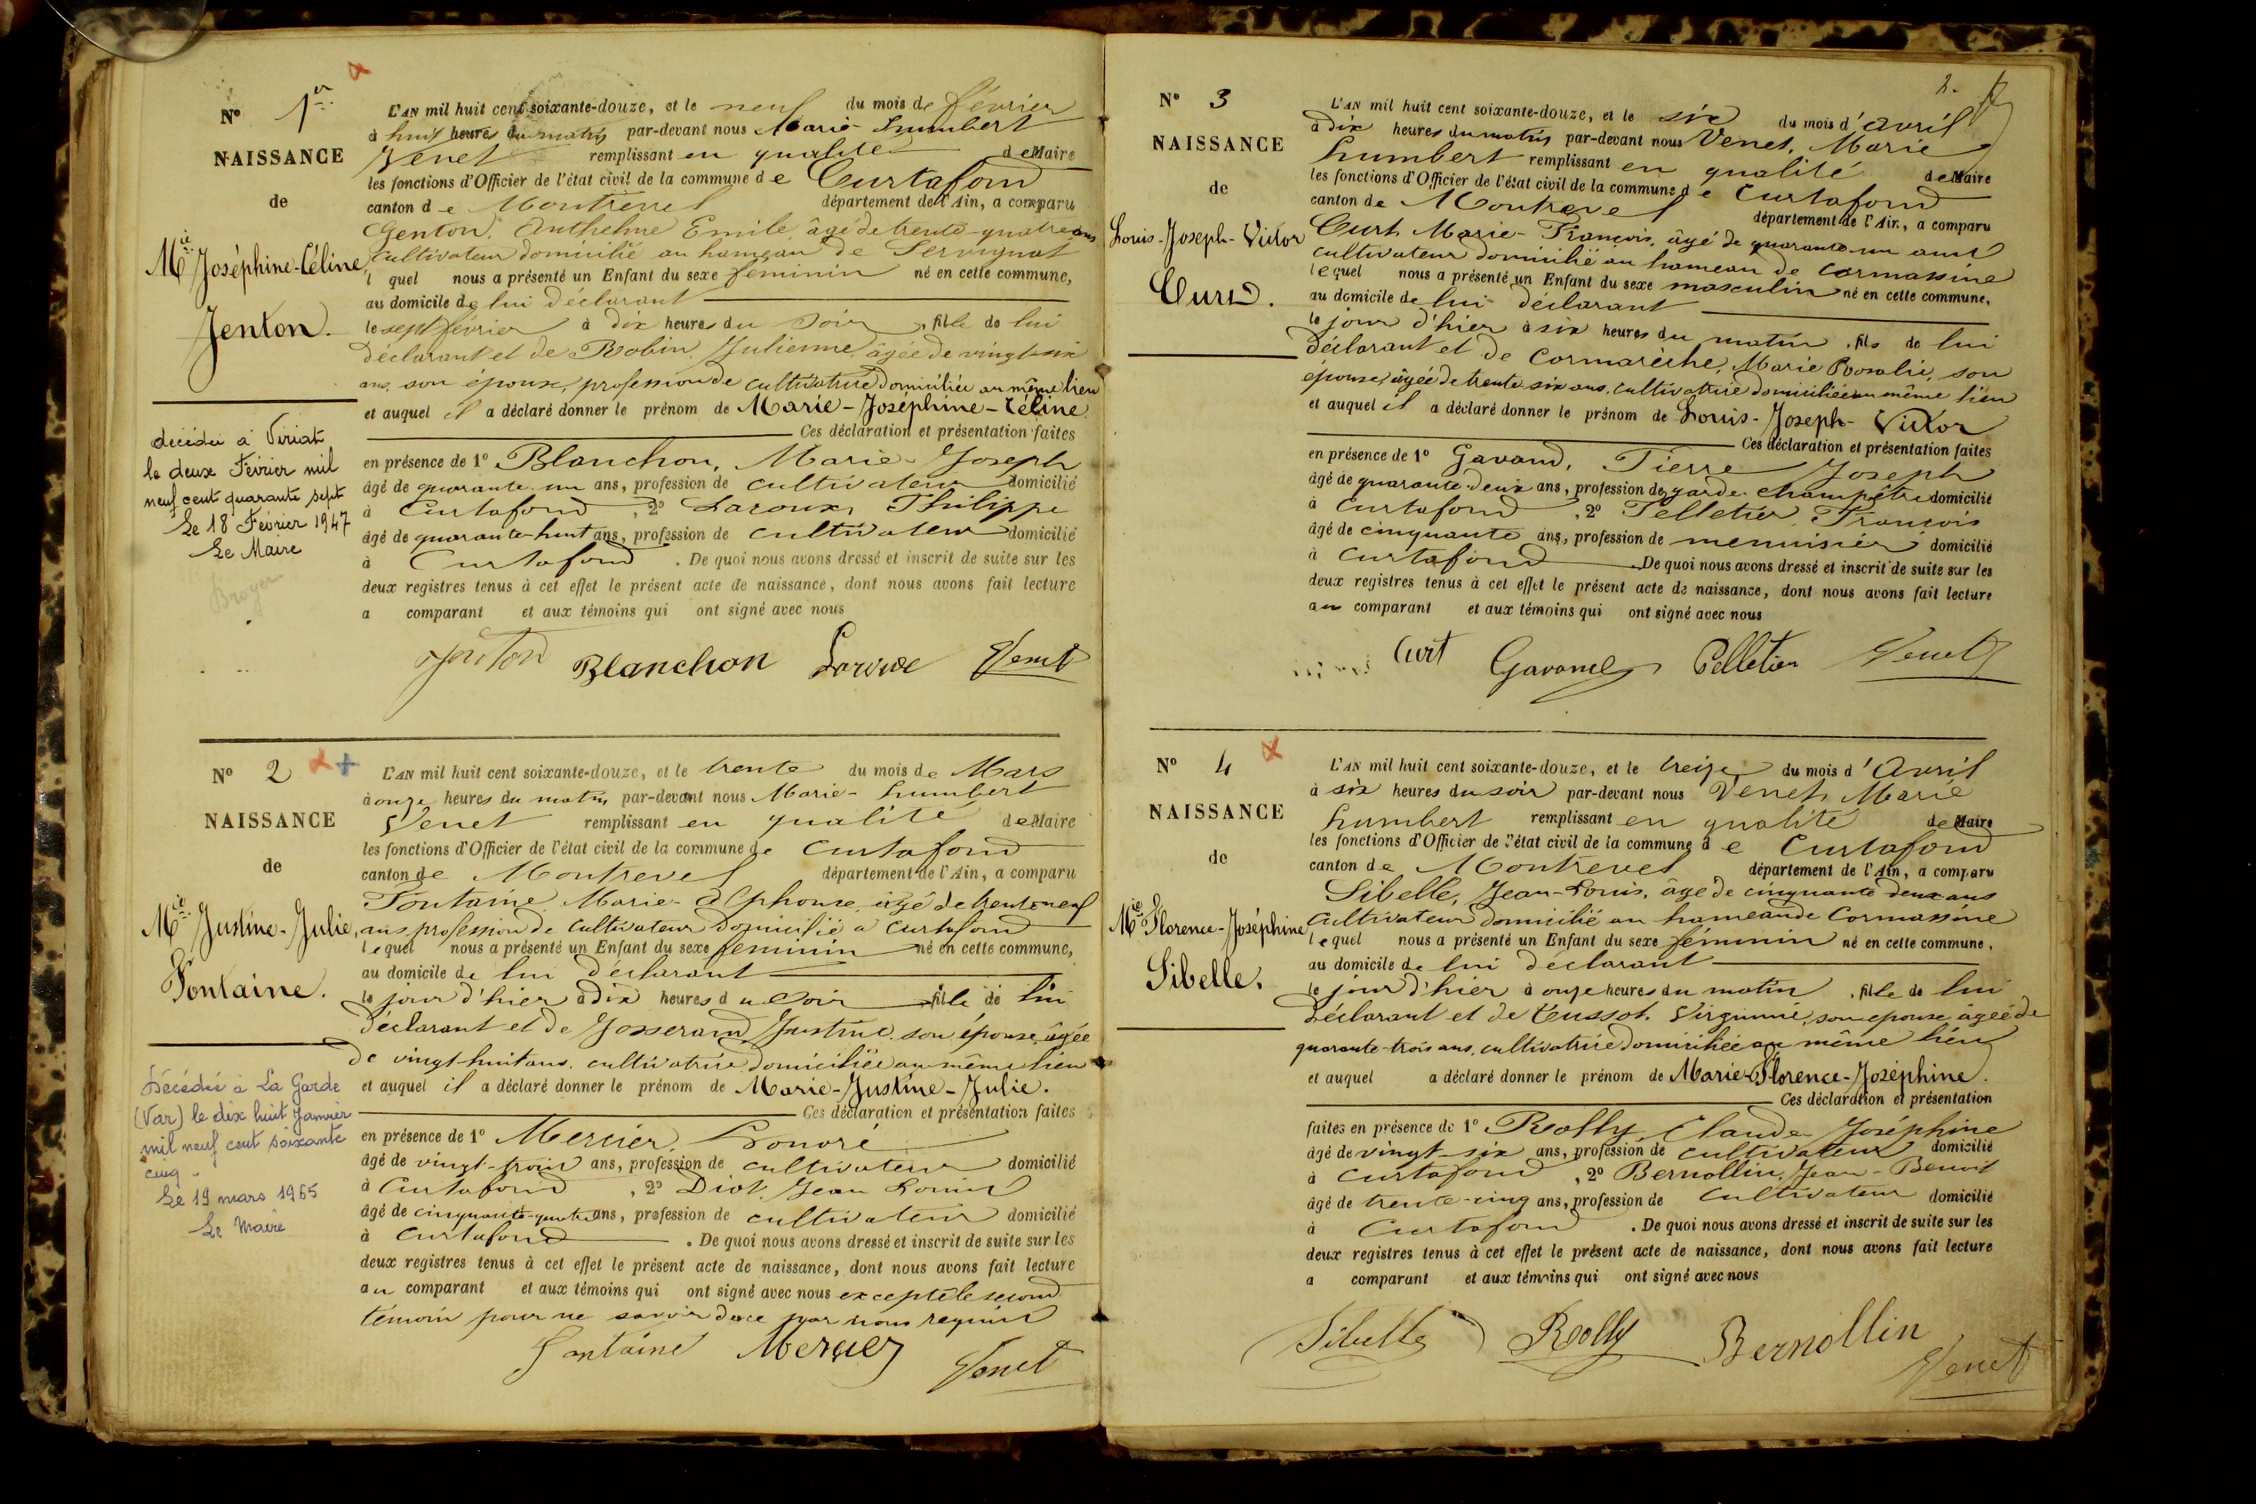 Nº 1er
NAISSANCE
de
Mie Joséphine-Céline
Jenton.
décédée à Viriat
le deux Février mil
neuf cent quarante sept
Le 18 Février 1947
Le Maire
Broyer
L'AN mil huit cent soixante-douze, et le neuf du mois de février
à huit heures du matin par-devant nous Marie-Humbert
Venet remplissant en qualité de Maire
les fonctions d'Officier de l'état civil de la commune de Curtafond
canton de Montrevel département de l'Ain, a comparu
Genton, Anthelme Emile, âgé de trente-quatre ans
cultivateur domicilié au hameau de Servignat
l quel nous a présenté un Enfant du sexe féminin né en cette commune,
au domicile de lui déclarant
le sept février à dix heures du soir, fille de lui
déclarant et de Robin Julienne âgée de vingt-six
ans, son épouse, profession de cultivatrice domiciliée au même lieu
et auquel il a déclaré donner le prénom de Marie-Joséphine-Céline
Ces déclaration et présentation faites
en présence de 1º Blanchon, Marie-Joseph
âgé de quarante un ans, profession de cultivateur domicilié
à Curtafond, 2º Laroux, Philippe
âgé de quarante-huit ans, profession de cultivateur domicilié
à Curtafond. De quoi nous avons dressé et inscrit de suite sur les
deux registres tenus à cet effet le présent acte de naissance, dont nous avons fait lecture
a comparant et aux témoins qui ont signé avec nous
Jenton Blanchon Venet
Nº 2
NAISSANCE
de
Mie Justine-Julie,
Fontaine.
Décédée à La Garde
(Var) le dix huit Janvier
mil neuf cent soixante
cinq.
Le 19 mars 1965
Le Maire
L'AN mil huit cent soixante-douze, et le trente du mois de Mars
à onze heures du matin par-devant nous Marie-Humbert
Venet remplissant en qualité de Maire
les fonctions d'Officier de l'état civil de la commune de Curtafond
canton de Montrevel département de l'Ain, a comparu
Fontaine Marie-Alphonse, âgé de trente neuf
ans profession de cultivateur domicilié à Curtafond
lequel nous a présenté un Enfant du sexe féminin né en cette commune,
au domicile de lui déclarant
le jour d'hier à dix heures du soir, fille de lui
déclarant et de Josserand Justine son épouse âgée
de vingt-huit ans, cultivatrice domiciliée au même lieu
et auquel il a déclaré donner le prénom de Marie-Justine-Julie.
Ces déclaration et présentation faites
en présence de 1º Mercier, Honoré
âgé de vingt-trois ans, profession de cultivateur domicilié
à Curtafond, 2º Diot, Jean Louis
âgé de cinquante-quatre ans, profession de cultivateur domicilié
à Curtafond. De quoi nous avons dressé et inscrit de suite sur les
deux registres tenus à cet effet le présent acte de naissance, dont nous avons fait lecture
au comparant et aux témoins qui ont signé avec nous excepté le second
témoin pour ne savoir de ce par nous requis
Fontaine Mercier Venet
2.
Nº 3
NAISSANCE
de
Louis-Joseph-Victor
Curt.
L'AN mil huit cent soixante-douze, et le six du mois d'avril
à dix heures du matin par-devant nous Venet, Marie
Humbert remplissant en qualité de Maire
les fonctions d'Officier de l'état civil de la commune de Curtafond
canton de Montrevel département de l'Ain, a comparu
Curt, Marie-François, âgé de quarante-un ans
cultivateur domicilié au hameau de Cormassine
lequel nous a présenté un Enfant du sexe masculin né en cette commune,
au domicile de lui déclarant
le jour d'hier à six heures du matin, fils de lui
déclarant et de Cormarèche, Marie Rosalie, son
épouse, âgée de trente six ans, cultivatrice domiciliée au même lieu
et auquel il a déclaré donner le prénom de Louis-Joseph-Victor
Ces déclaration et présentation faites
en présence de 1º Gavand, Pierre Joseph
âgé de quarante-deux ans, profession de garde-champêtre domicilié
à Curtafond, 2º Pelletier, François
âgé de cinquante ans, profession de menuisier domicilié
à Curtafond. De quoi nous avons dressé et inscrit de suite sur les
deux registres tenus à cet effet le présent acte de naissance, dont nous avons fait lecture
au comparant et aux témoins qui ont signé avec nous
Curt Gavand Pelletier Venet
Nº 4
NAISSANCE
de
Mie Florence-Joséphine
Sibelle.
L'AN mil huit cent soixante-douze, et le treize du mois d'Avril
à six heures du soir par-devant nous Venet, Marie
Humbert remplissant en qualité de Maire
les fonctions d'Officier de l'état civil de la commune de Curtafond
canton de Montrevel département de l'Ain, a comparu
Sibelle, Jean-Louis, âgé de cinquante deux ans
cultivateur domicilié au hameau de Cormassine
lequel nous a présenté un Enfant du sexe féminin né en cette commune,
au domicile de lui déclarant
le jour d'hier à onze heures du matin, fille de lui
déclarant et de son épouse âgée de
quarante-trois ans, cultivatrice domiciliée au même lieu
et auquel a déclaré donner le prénom de Marie-Florence-Joséphine.
Ces déclaration et présentation
faites en présence de 1º Rolly, Claude Joséphine
âgé de vingt-six ans, profession de cultivateur domicilié
à Curtafond, 2º Bernollin, Jean-Benoit
âgé de trente-cinq ans, profession de cultivateur domicilié
à Curtafond. De quoi nous avons dressé et inscrit de suite sur les
deux registres tenus à cet effet le présent acte de naissance, dont nous avons fait lecture
a comparant et aux témoins qui ont signé avec nous
Sibelle Rolly Bernollin Venet